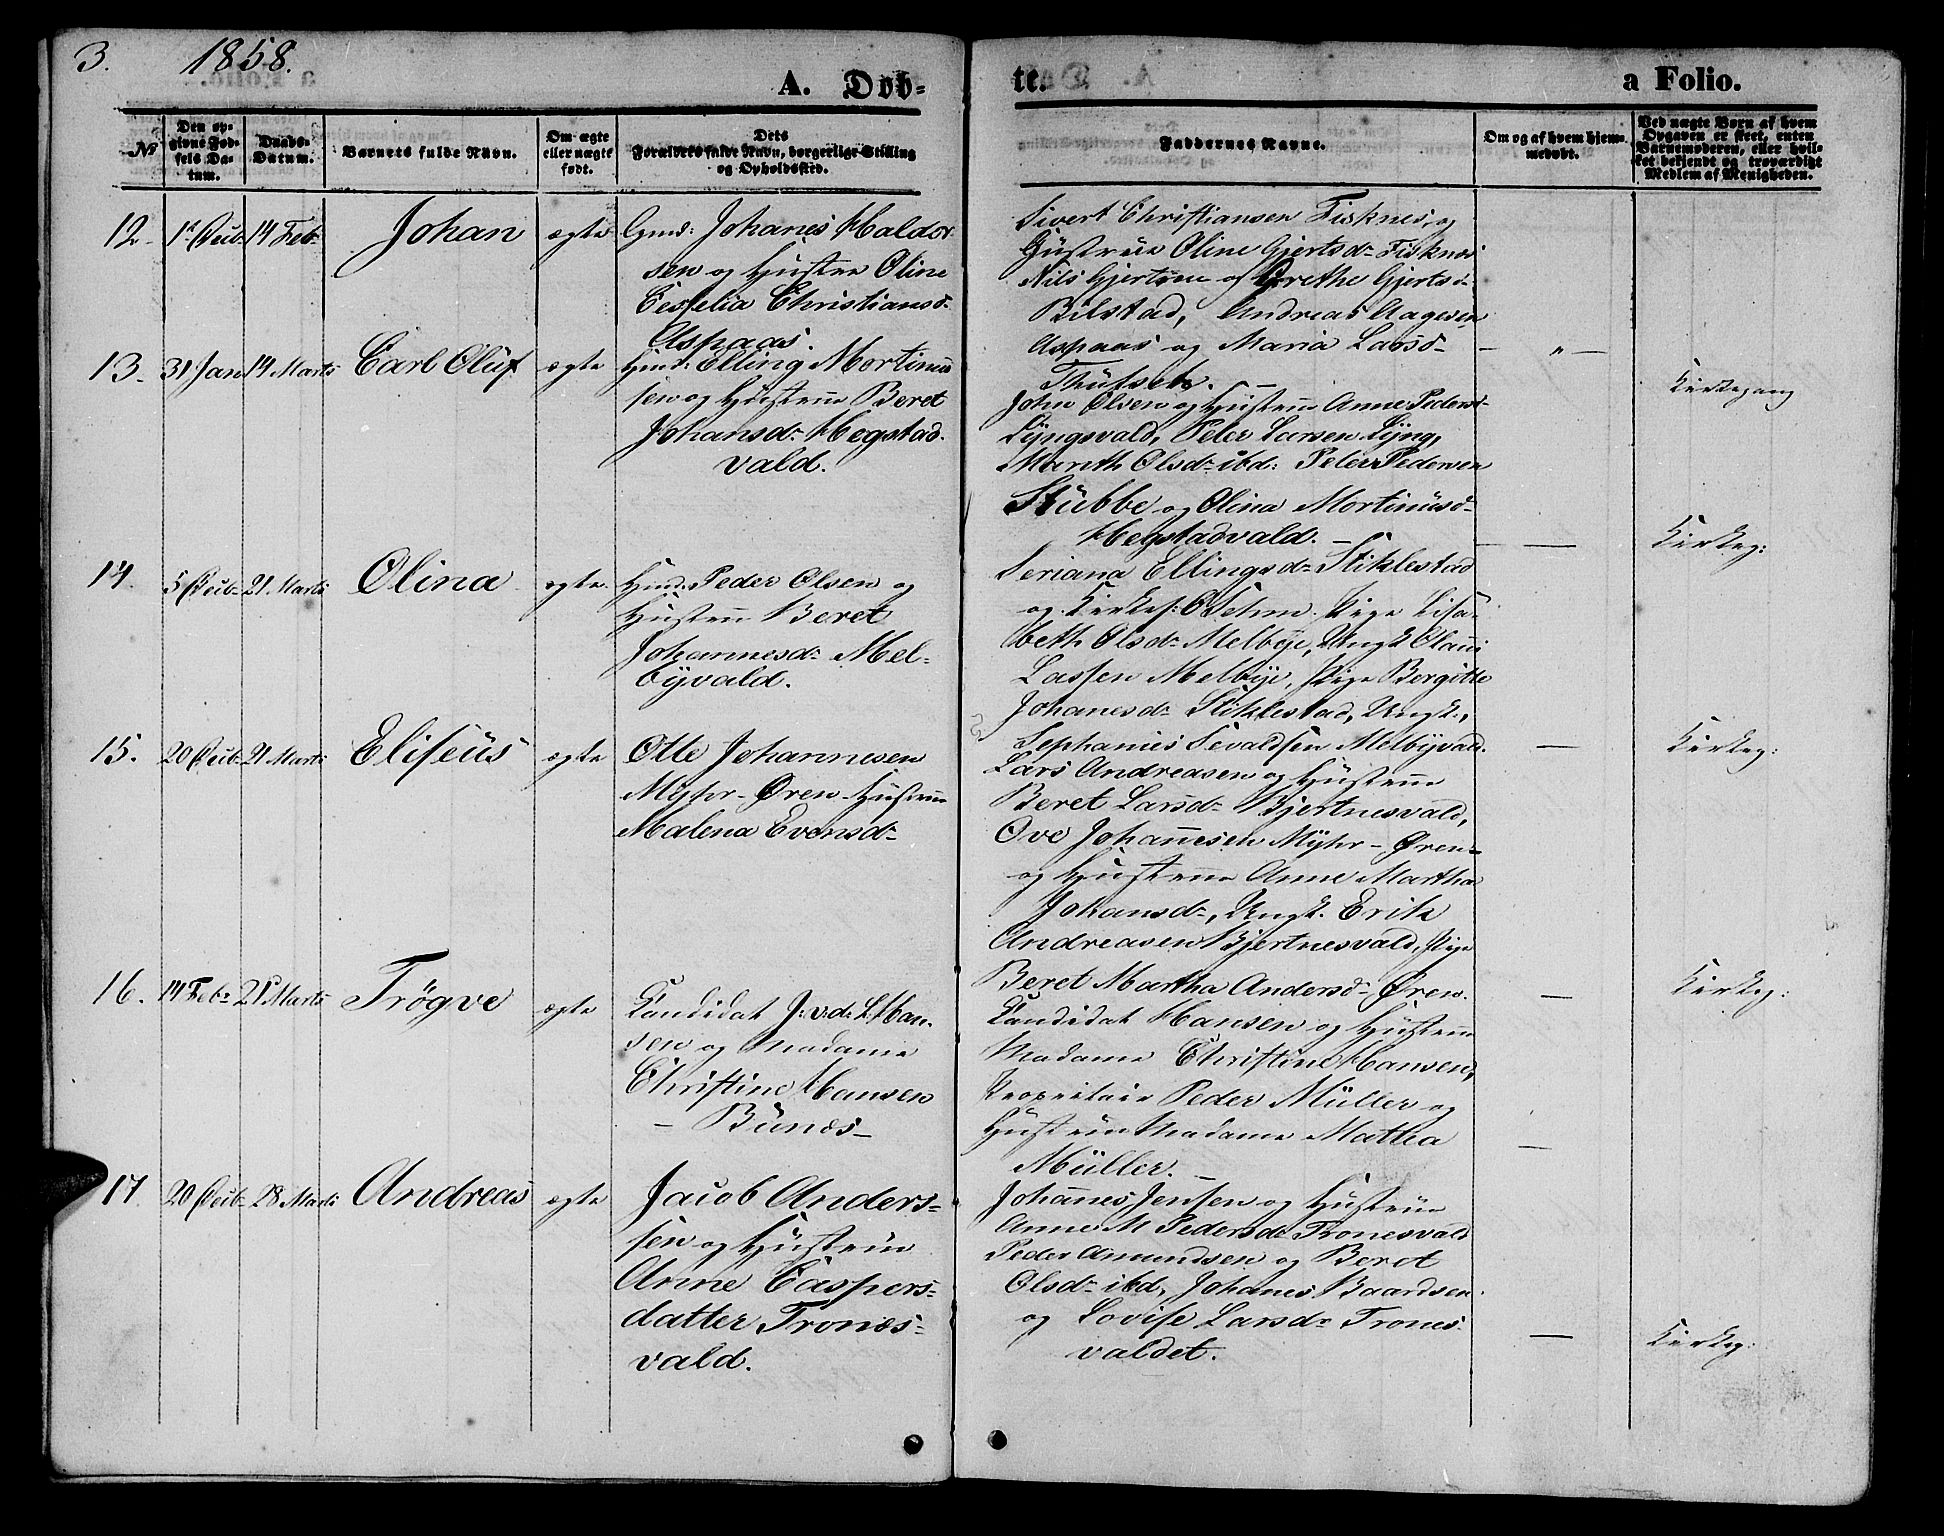 3. 1858.
A. Døb-
te.
a Folio.
№
Den op-
givne Fød-
sels Da-
tum.
Daabs-
Datum.
Barnets fulde Navn.
Om ægte
eller uægte
født.
Dets
Forældres fulde Navn, borgerlige Stilling
og Opholdssted.
Faddernes Navne.
Om og af hvem hjem-
medøbt.
Ved uægte Børn af hvem
Opgaven er skeet, enten
Barnemoderen, eller hvil-
ket bekjendt og troværdigt
Medlem af Menigheden.
12. 14 Feb: Johan ægte Johanes Haldor
sen og Hustru Oline
Cesselia Christiansd:
Aspaas.
Sivert Christiansen Fisknes, og
Hustrue Oline Gjertsd: Fisknes
Nils Gjertsen og Grethe Gjertsd:
Bilstad, Andreas Aagesen
Aspaas og Maria Larsd:
13. 31 Jan 14 Marts Carl Oluf ægte Elling Mortinu
sen og Hustru Beret
Johansd: Hegstad
vald.
John Olsen og Hustru Anne Pedersd:
Lyngsvald, Peter Larsen Lyng,
Marith Olsd: ibd: Peter Pedersen
Stubbe og Olina Mortinusd:
Hegstadvald. —
Kirkegang
14. 21 Marts Olina ægte Peder Olsen og
Hustru Beret
Johannesd: Mel-
byvald.
Seriana Ellingsd: Stiklestad
og Kirkes: Pige Lisa-
beth Olsd: Melbye, Ungk.
Lassen Melbye, Pige Bergitte
Johanesd: Stiklestad, Ungk.,
Sephanies Sevaldsen Melbyvald.
Kirkeg:
15. 21 Marts Eliseus ægte Otte Johannesen
Myhr-Øren Hustru
Malena Evensd:
Lars Andreasen og Hustru
Beret Larsd: Bjertnesvald,
Ove Johannesen Myhr-Øren
og Hustrue Anne Martha
Johansd:, Ungk. Erik
Andreasen Bjertnesvald, Pige
Beret Martha Andersd: Øren.
Kirkeg:
16. 14 Feb: 21 Marts Trögve ægte Candidat J. v. d. L. Han-
sen og Madame
Christine Hansen
— Bunæs —
Candidat Hansen og Hustru
Madame Christine Hansen,
Proprietair Peder Müller og
Hustrue Madame Mathea
Müller. —
Kirkeg:
17 28 Marts Andreas ægte Jacob Anders-
sen og Hustrue
Anne Caspers-
datter Tronæs-
vald.
Johannes Jensen og Hustrue
Anne M Pedersd: Tronesvald
Peder Amundsen og Beret
Olsd: ibd, Johanes Baardsen
og Lovise Larsd: Trones-
valdet.
Kirkeg: